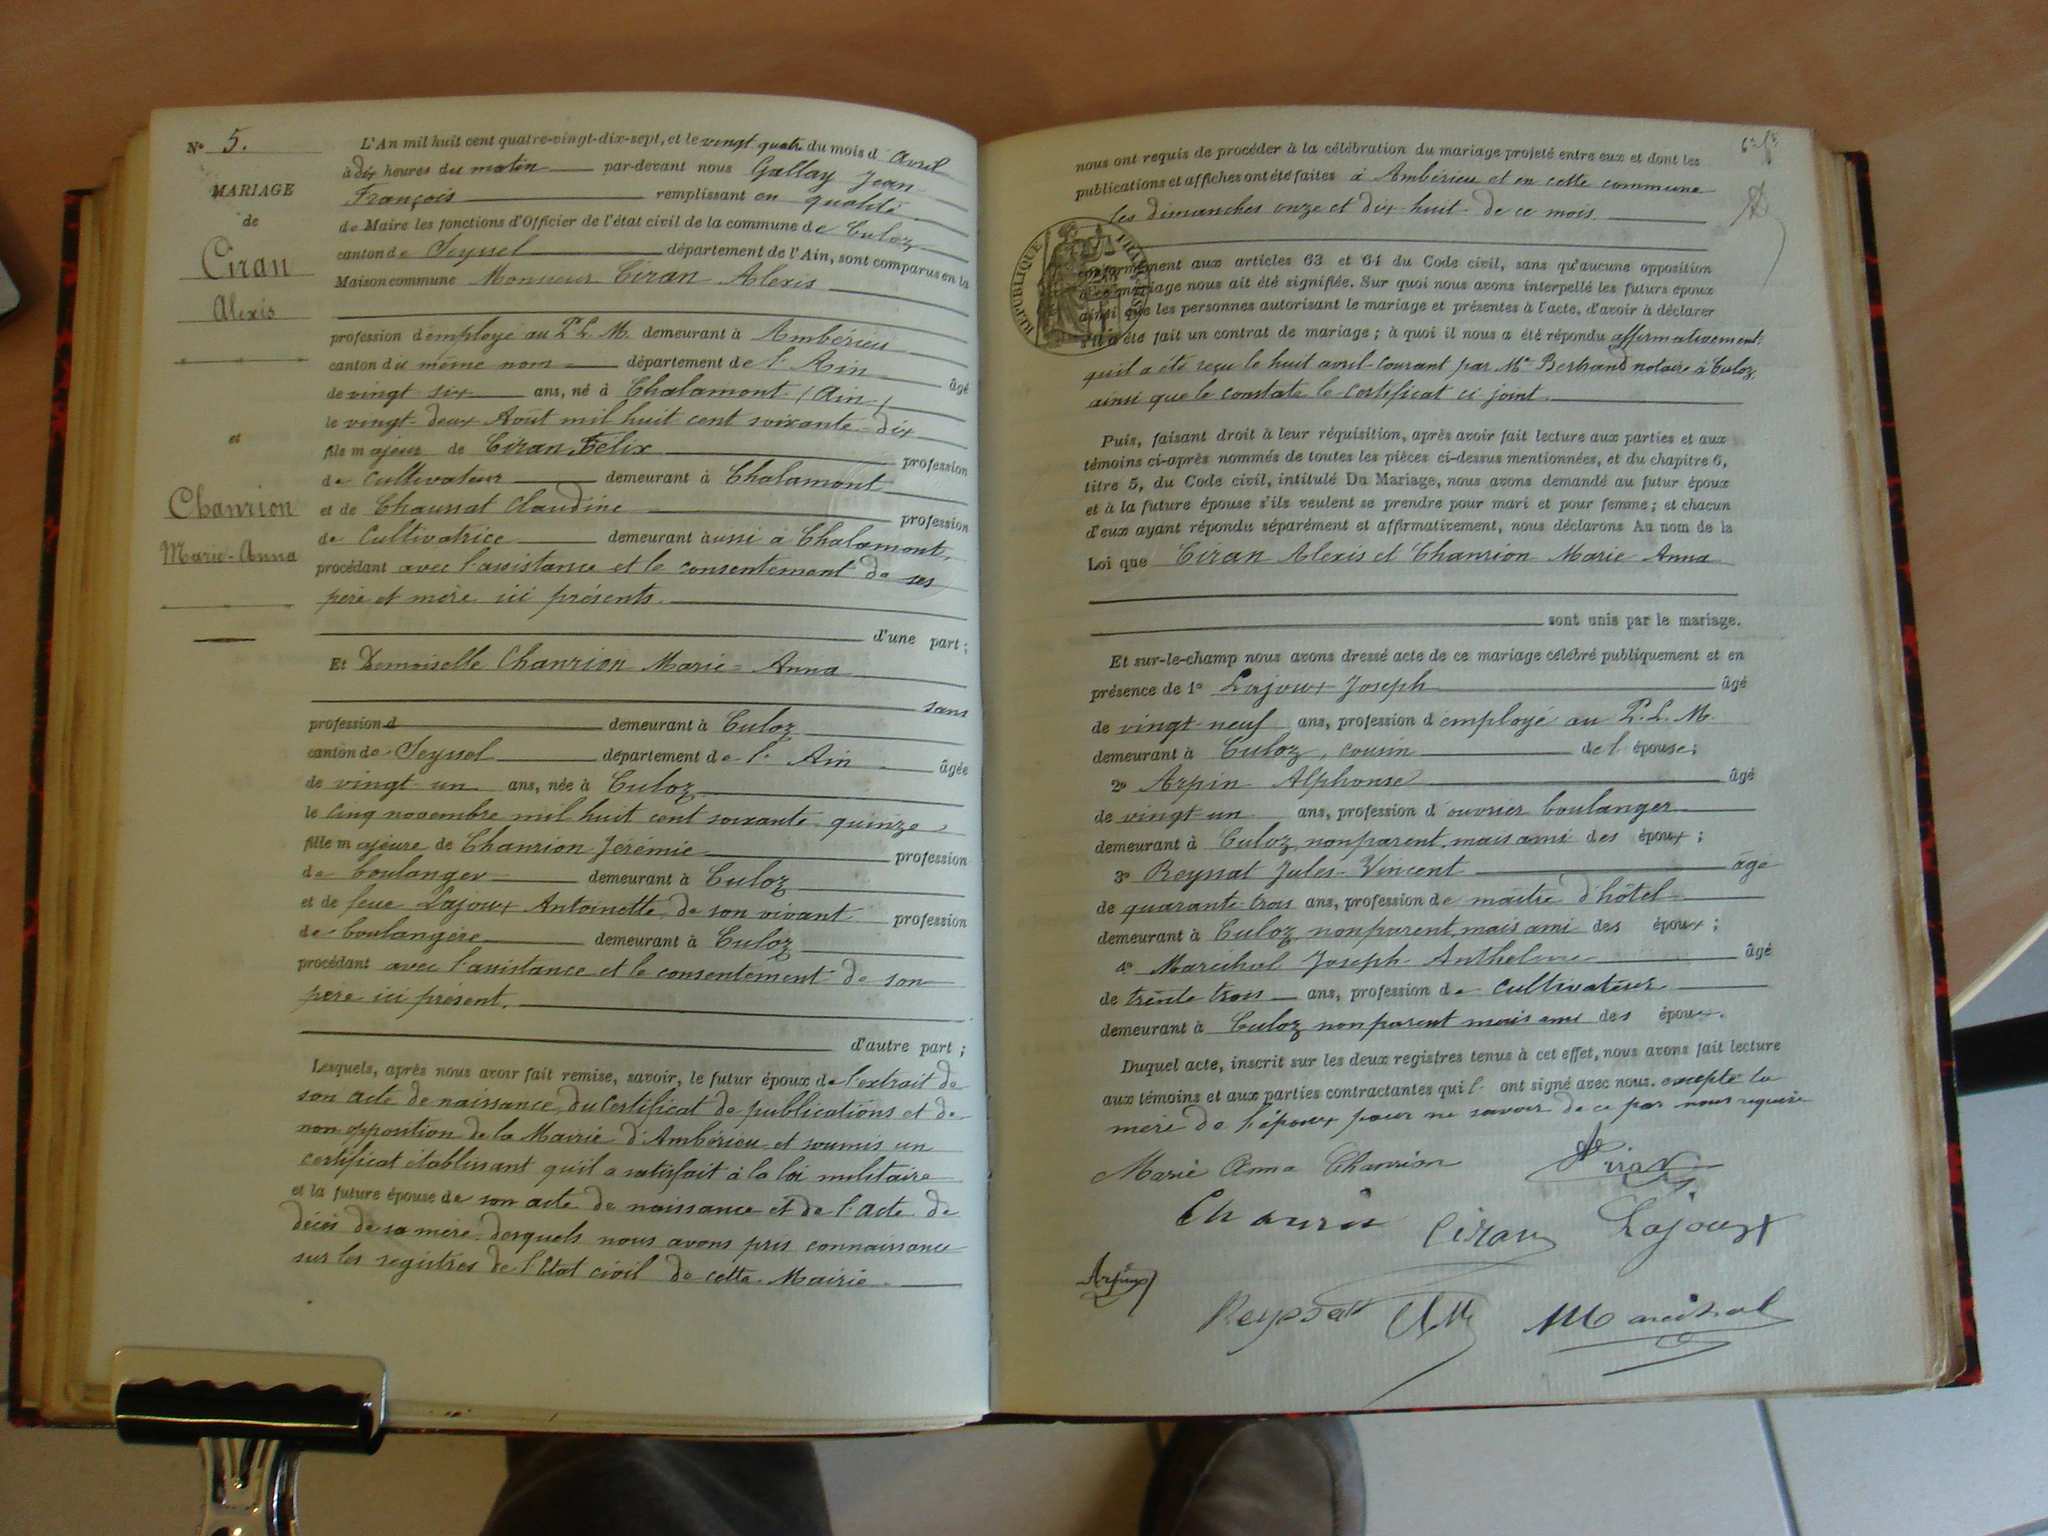 N° 5.
MARIAGE
de
Ciran
Alexis
et
Chanrion
Marie-Anna
L'An mil huit cent quatre-vingt-dix-sept, et le vingt quatre du mois d'Avril
à dix heures du matin par-devant nous Gallay Jean
François remplissant en qualité
de Maire les fonctions d'Officier de l'état civil de la commune de Culoz
canton de Seyssel département de l'Ain, sont comparus en la
Maison commune Monsieur Ciran Alexis
profession d'employé au P. L. M. demeurant à Ambérieu
canton du même nom département de l'Ain âgé
de vingt six ans, né à Chalamont (Ain)
le vingt-deux Août mil huit cent soixante-dix
fils majeur de Ciran Félix profession
de Cultivateur demeurant à Chalamont
et de Chaussat Claudine profession
de Cultivatrice demeurant aussi à Chalamont,
procédant avec l'assistance et le consentement de ses
père et mère ici présents.
d'une part ;
Et Demoiselle Chanrion Marie-Anna
sans
profession d demeurant à Culoz
canton de Seyssel département de l'Ain âgée
de vingt-un ans, née à Culoz
le cinq novembre mil huit cent soixante quinze
fille majeure de Chanrion Jérémie profession
de boulanger demeurant à Culoz
et de feue Lajoux Antoinette, de son vivant profession
de boulangère demeurant à Culoz
procédant avec l'assistance et le consentement de son
père ici présent.
d'autre part ;
Lesquels, après nous avoir fait remise, savoir, le futur époux de l'extrait de
son acte de naissance, du Certificat de publications et de
non opposition de la Mairie d'Ambérieu et soumis un
certificat établissant qu'il a satisfait à la loi militaire
et la future épouse de son acte de naissance et de l'acte de
décès de sa mère desquels nous avons pris connaissance
sur les registres de l'Etat civil de cette Mairie.
nous ont requis de procéder à la célébration du mariage projeté entre eux et dont les
publications et affiches ont été faites à Ambérieu et en cette commune
les dimanches onze et dix-huit de ce mois.
RÉPUBLIQUE FRANÇAISE
conformément aux articles 63 et 64 du Code civil, sans qu'aucune opposition
à ce mariage nous ait été signifiée. Sur quoi nous avons interpellé les futurs époux
ainsi que les personnes autorisant le mariage et présentes à l'acte, d'avoir à déclarer
s'il a été fait un contrat de mariage ; à quoi il nous a été répondu affirmativement
qu'il a été reçu le huit avril courant par Me Bertrand notaire à Culoz,
ainsi que le constate le certificat ci joint.
Puis, faisant droit à leur réquisition, après avoir fait lecture aux parties et aux
témoins ci-après nommés de toutes les pièces ci-dessus mentionnées, et du chapitre 6,
titre 5, du Code civil, intitulé Du Mariage, nous avons demandé au futur époux
et à la future épouse s'ils veulent se prendre pour mari et pour femme ; et chacun
d'eux ayant répondu séparément et affirmativement, nous déclarons Au nom de la
Loi que Ciran Alexis et Chanrion Marie Anna
sont unis par le mariage.
Et sur-le-champ nous avons dressé acte de ce mariage célébré publiquement et en
présence de 1° Lajoux Joseph âgé
de vingt-neuf ans, profession d'employé au P. L. M.
demeurant à Culoz, cousin de l'épouse ;
2° Arpin Alphonse âgé
de vingt-un ans, profession d'ouvrier boulanger
demeurant à Culoz, non parent, mais ami des époux ;
3° Reyssat Jules-Vincent âgé
de quarante-trois ans, profession de maître d'hôtel
demeurant à Culoz, non parent, mais ami des époux ;
4° Maréchal Joseph-Anthelme âgé
de trente trois ans, profession de cultivateur
demeurant à Culoz non parent mais ami des époux.
Duquel acte, inscrit sur les deux registres tenus à cet effet, nous avons fait lecture
aux témoins et aux parties contractantes qui l' ont signé avec nous. excepté la
mère de l'époux pour ne savoir de ce par nous requise
Marie Anna Chanrion
Ciran
Ciran Lajoux
Arpin
Reyssat Maréchal